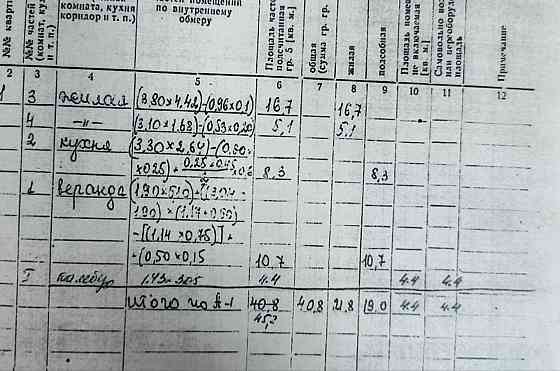 №№ кварти
№№ частей (комнат, кух и т. п.)
комната, кухня коридор и т. п.)
частей помещений по внутреннему обмеру
Площадь часте подсчитанная гр. 5 [кв. м.]
общая (сумма гр. гр.
жилая
подсобная
Площадь помеще не включаемая [кв. м.]
Самовольно воз или переоборудо площадь
Примечание
2 3 4 5 6 7 8 9 10 11 12
1 3 жилая (3,80×4,42)-(0,96×0,1) 16,7 16,7
4 -"- (3,10×1,68)-(0,53×0,20) 5,1 5,1
2 кухня (3,30×2,64)-(0,50×
×0,25)+ 0,25×0,45 ×0,6 8,3 8,3
2
1 веранда (1,90×5,10)
1,90)
-[(1,14×0,75)]+
-(0,50×0,15 10,7 10,7
I 4.4 4.4 4.4
итого по А-1 40,8 40,8 21,8 19,0 4.4 4.4
45,2